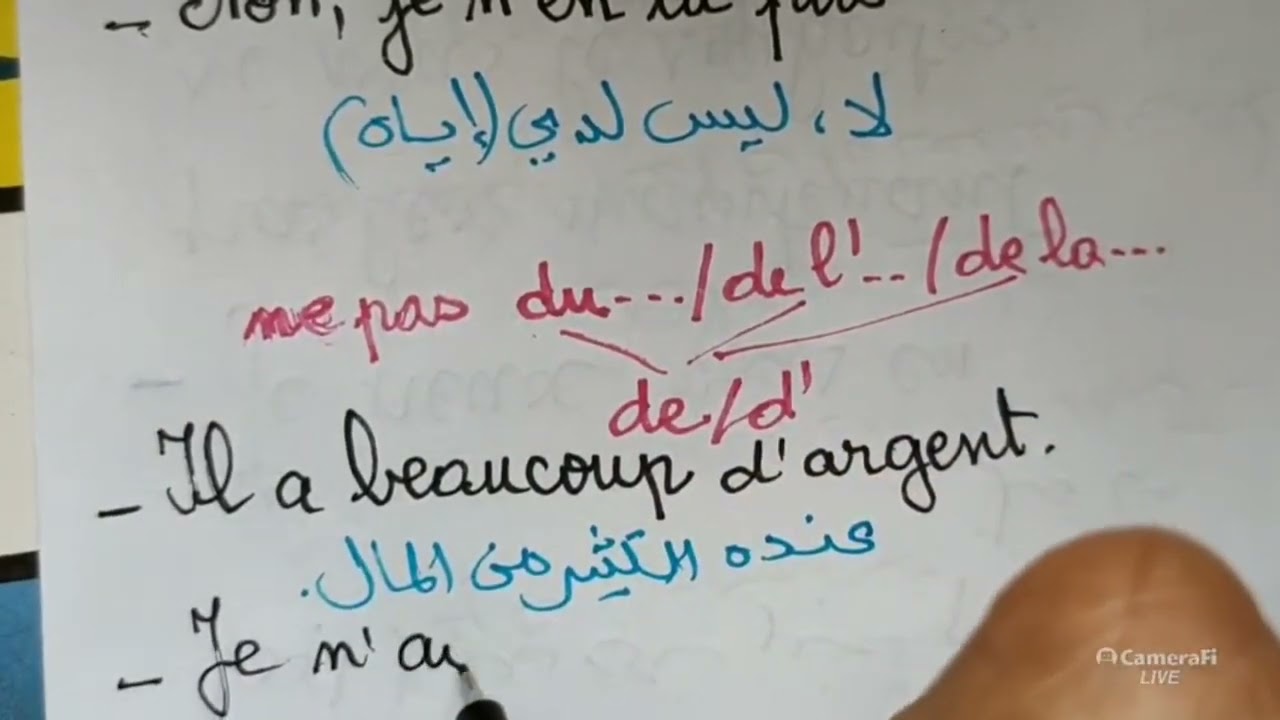 - Non, je n'en ai pas
لا، ليس لدي (إياه)
ne pas du.../de l'.../de la...
de/d'
- Il a beaucoup d'argent.
عنده الكثير من المال.
- Je n'ai
CameraFi
LIVE